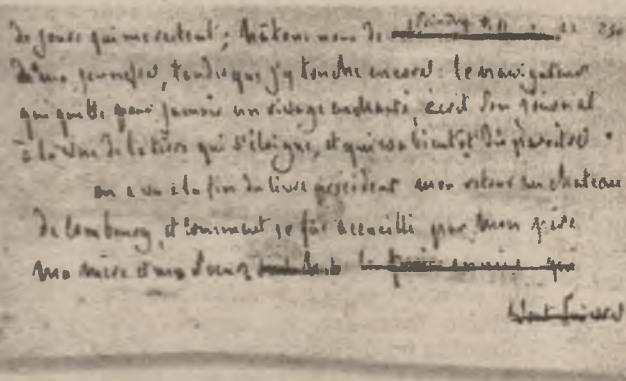 de jours qui me restent ; hâtons nous de peindre
ma jeunesse, tandis que j'y touche encore : le navigateur
qui quitte pour jamais un rivage enchanté, écrit son journal
à la vue de la terre qui s'éloigne, et qui va bientôt disparoitre.
on a vu à la fin du livre précédent mon retour au chateau
de Combourg, et comment je fus accueilli par mon père
ma mère et ma soeur